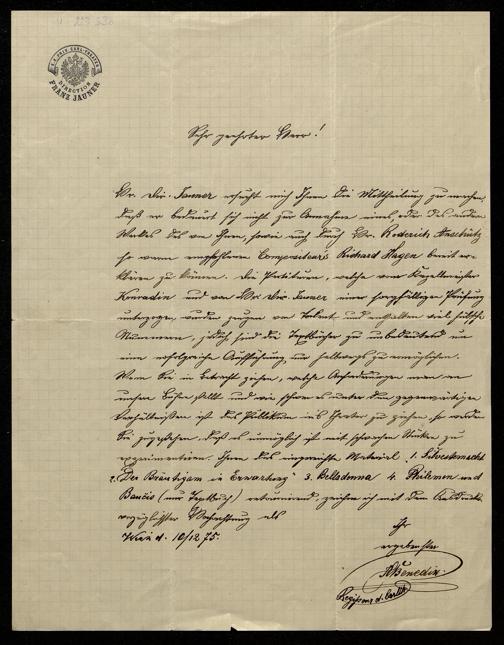 K. K. PRIV. CARL-THEATER
DIRECTION
FRANZ JAUNER
Sehr geehrter Herr!
Hr. Dir. Jauner ersucht mich Ihnen die Mittheilung zu machen,
daß er bedauert sich nicht zur Annahme eines, oder des andern
Werkes des von Ihnen, sowie auch durch Hr. Roderich Anschütz
so warm empfohlenen Compositeurs Richard Hagen bereit er-
klären zu können. Die Partituren, welche vom Kapellmeister
Konradin und von Hr. Dir. Jauner einer sorgfältigen Prüfung
unterzogen wurden zeugen von Talent, und enthalten viel hübsche
Nummern, jedoch sind die Textbücher zu unbedeutend um
eine erfolgreiche Aufführung nur halbwegs zu ermöglichen.
Wenn Sie in Betracht ziehen, welche Anforderungen man an
unsere Bühne stellt und wie schwer es unter den gegenwärtigen
Verhältnissen ist das Publikum ins Theater zu ziehen, so werden
Sie zugestehen, daß es unmöglich ist mit schwachen Stücken zu
experimentiren. Ihnen das eingereichte Material 1. Silvesternacht
2. Der Bräutigam in Erwartung 3. Belladonna 4. Philemon und
Baucis (nur Textbuch) retournirend, zeichne ich mit dem Ausdrucke
vorzüglichster Hochachtung als
Wien d. 10/12 75.
Ihr
ergebenster
Regisseur d. Carlth.